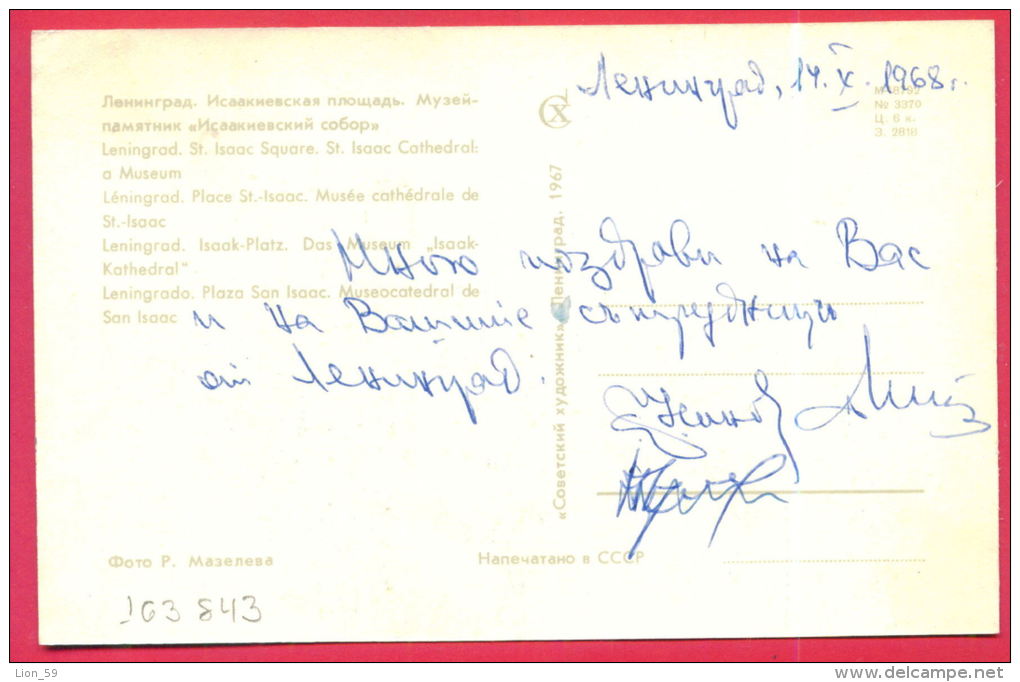 Ленинград, 14.X.1968г.
№ 3370
Ц. 6 к.
З. 2818
Ленинград. Исаакиевская площадь. Музей-
памятник «Исаакиевский собор»
Leningrad. St. Isaac Square. St. Isaac Cathedral:
a Museum
Léningrad. Place St.-Isaac. Musée cathédrale de
St.-Isaac
Leningrad. Isaak-Platz. Das Museum „Isaak-
Kathedral“
Leningrado. Plaza San Isaac. Museocatedral de
San Isaac
«Советский художник» Ленинград. 1967
Много поздрави на Вас
и на Вашите сътрудници
от Ленинград.
Фото Р. Мазелева
Напечатано в СССР
163 843
Lion_59
www.delcampe.net